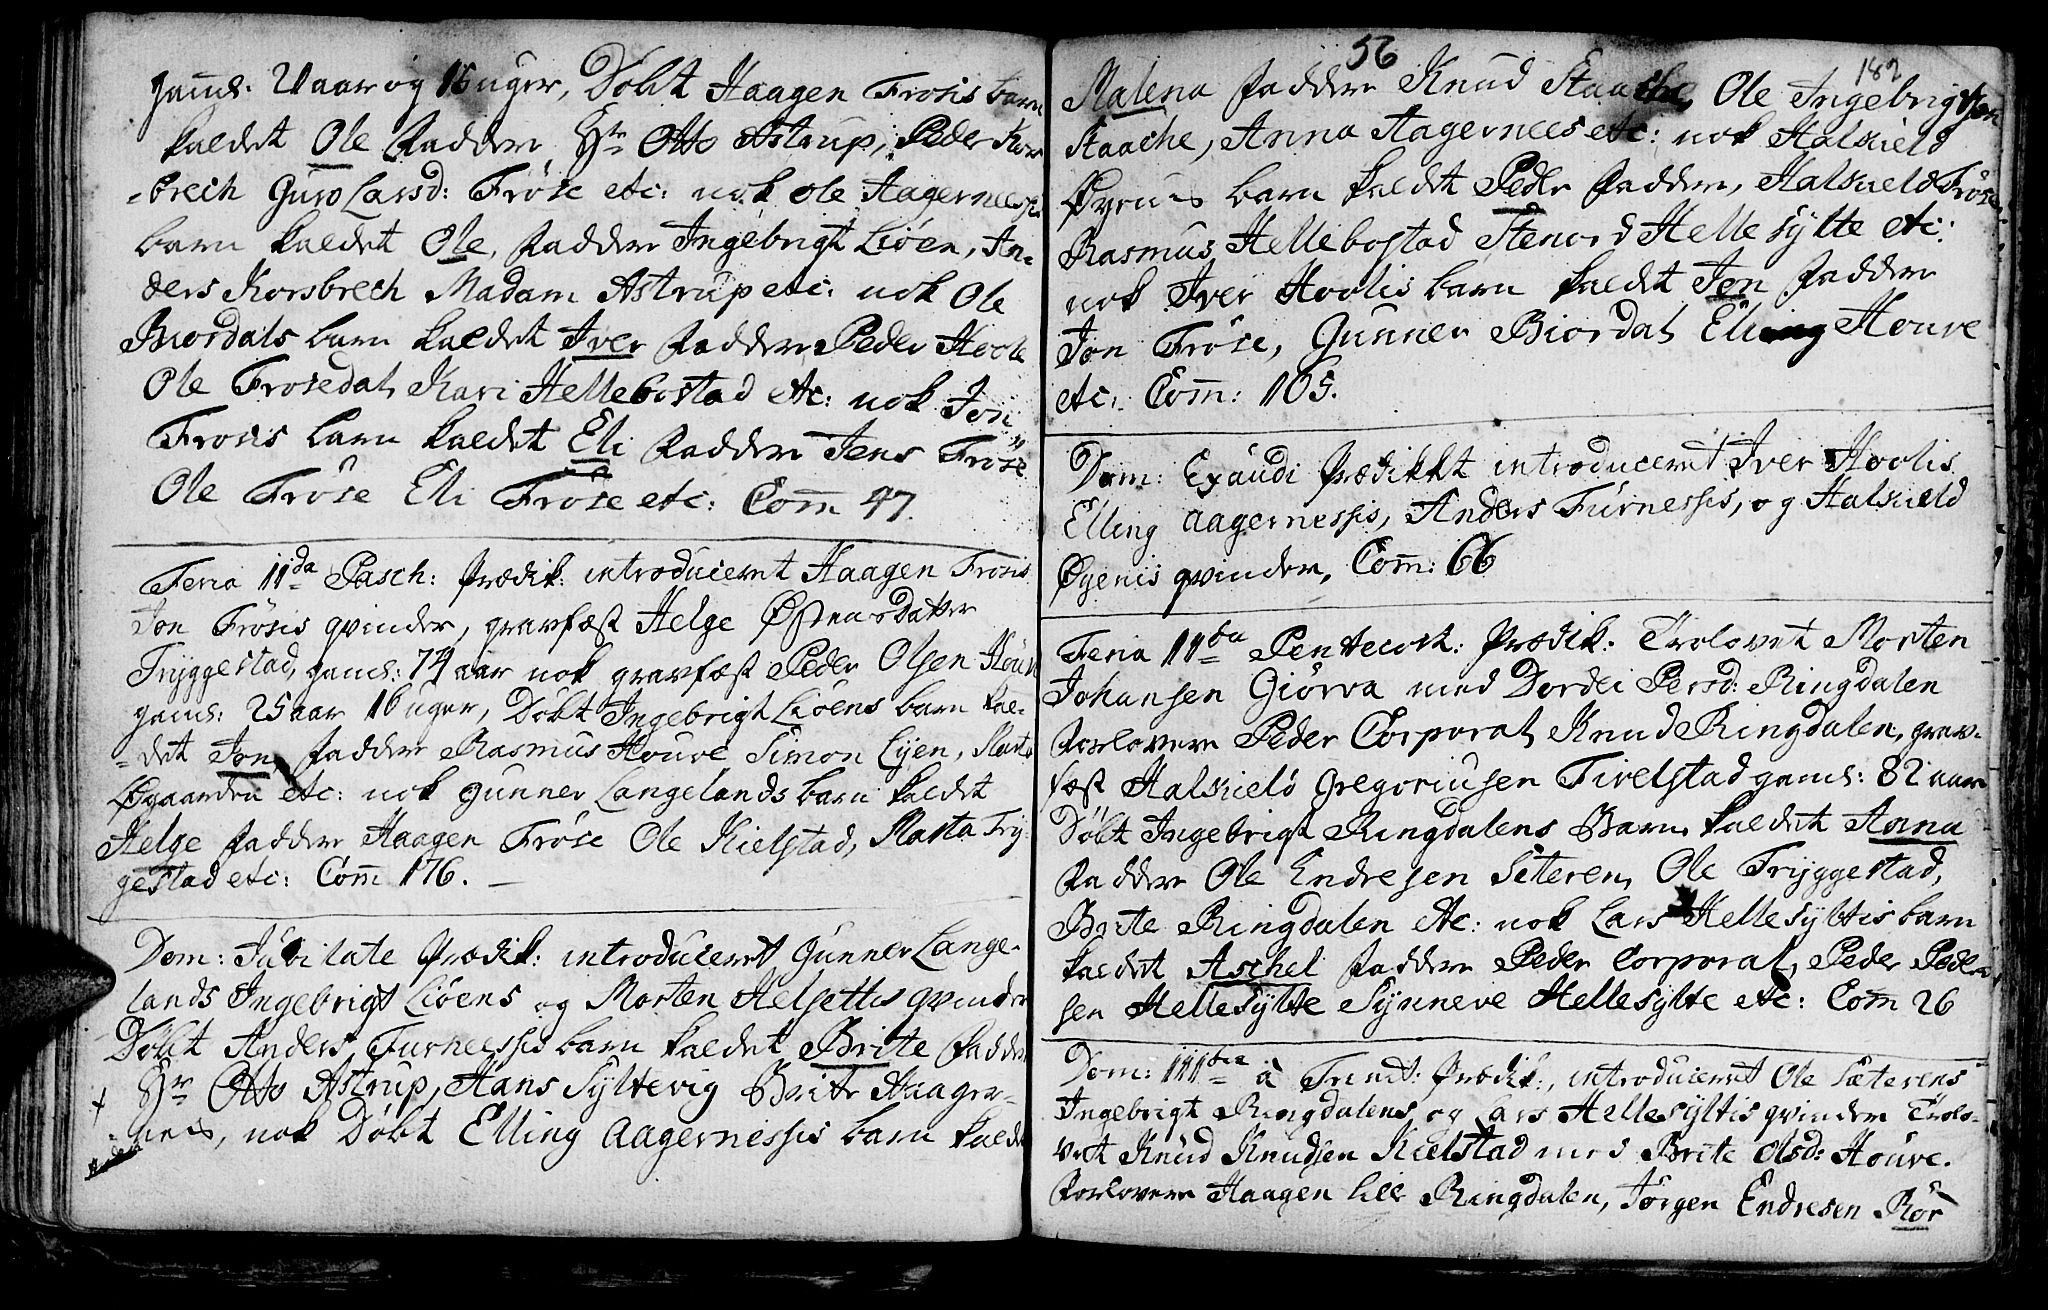 gaml: 2 aar og 16 uger, Døbt Haagen Frøsis barn
kaldet Ole Faddere Hr Otto Astrup, Peder Kors
-brech Guro Larsd: Frøse etc: nok Ole Aagerneesis
barn kaldet Ole, Faddere Ingebrigt Liøen, An-
ders Korsbrech Madam Astrup etc: nok Ole
Biordals barn kaldet Iver Faddere Peder Hoole
Ole Frøsedal, Kari Hellebostad etc: nok Jon
Frøsis barn kaldet Eli Faddere Jens Frøse
Ole Frøse Eli Frøse etc: Com̄ 47.
Feria IIda Pasch: Prædik: introduceret Haagen Frøsis
Jon Frøsis qvinder, gravfæst Helge Østensdatter
Tryggestad, gaml: 74 aar nok gravfæst Peder Olsen Houve
gaml: 25 aar 16 uger, Døbt Ingebrigt Liøens barn kal-
-det Jon, Faddere Rasmus Houve Simon Lien, Marta
Øgaarden etc: nok Gunner Langelands barn kaldet
Helge Faddere Haagen Frøse Ole Kielstad, Marta Try-
gestad etc: Com̄ 176. —
Dom: Jubilate Prædik: introduceret Gunner Lange-
lands Ingebrigt Liøens og Morten Helsettis qvinder
Døbt Anders Furneessis barn kaldet Brite Fadder
Hr Otto Astrup, Hans Syltevig Brite Aager-
-neis, nok Døbt Elling Aagernessis barn kaldet
56
182
Malena Faddere Knud Staache, Ole Ingebrigtsen
Staache, Anna Aagernees etc: nok Halkield
Øyenis barn kaldet Peder Faddere, Halkield Frøse
Rasmus Hellebostad Stenord Hellesylte etc:
nok Iver Hoolis barn kaldet Jon Faddere
Jon Frøse, Gunner Biordal Elling Houve
etc. Com̄: 105.
Dom: Exaudi Prædikkt introduceret Iver Hoolis
Elling Aagernessis, Anders Furnessis, og Halkield
Øyenis qvinder, Com̄: 66
Feria IIda Pentecost: Prædik: Trolovet Morten
Johansen Giørva med Dordei Persd: Ringdalen
Forlovere Peder Corporal, Knud Ringdalen, grav-
fæst Halkield Gregoriusen Tivelstad gaml: 82 aar
Døbt Ingebrigt Ringdalens Barn kaldet Anna
Faddere Ole Endresen Seteren, Ole Tryggestad,
Brite Ringdalen etc: nok Lars Hellesyltis barn
kaldet Aschel Faddere Peder Corporal, Peder Peder
sen Hellesylte Synneve Hellesylte etc: Com̄ 26
Dom: IIItia à Trinit: Prædik:, introduceret Ole Sæterens
Ingebrigt Ringdalens og Lars Hellesyltis qvinder Trolo-
vet Knud Knudsen Kielstad med Brite Olsd: Houve.
Forlovere Haagen lille Ringdalen, Jørgen Endresen Rør